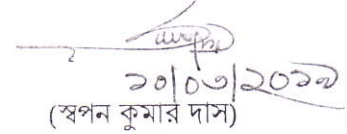 ১০|০৩|২০১৯
(স্বপন কুমার দাস)